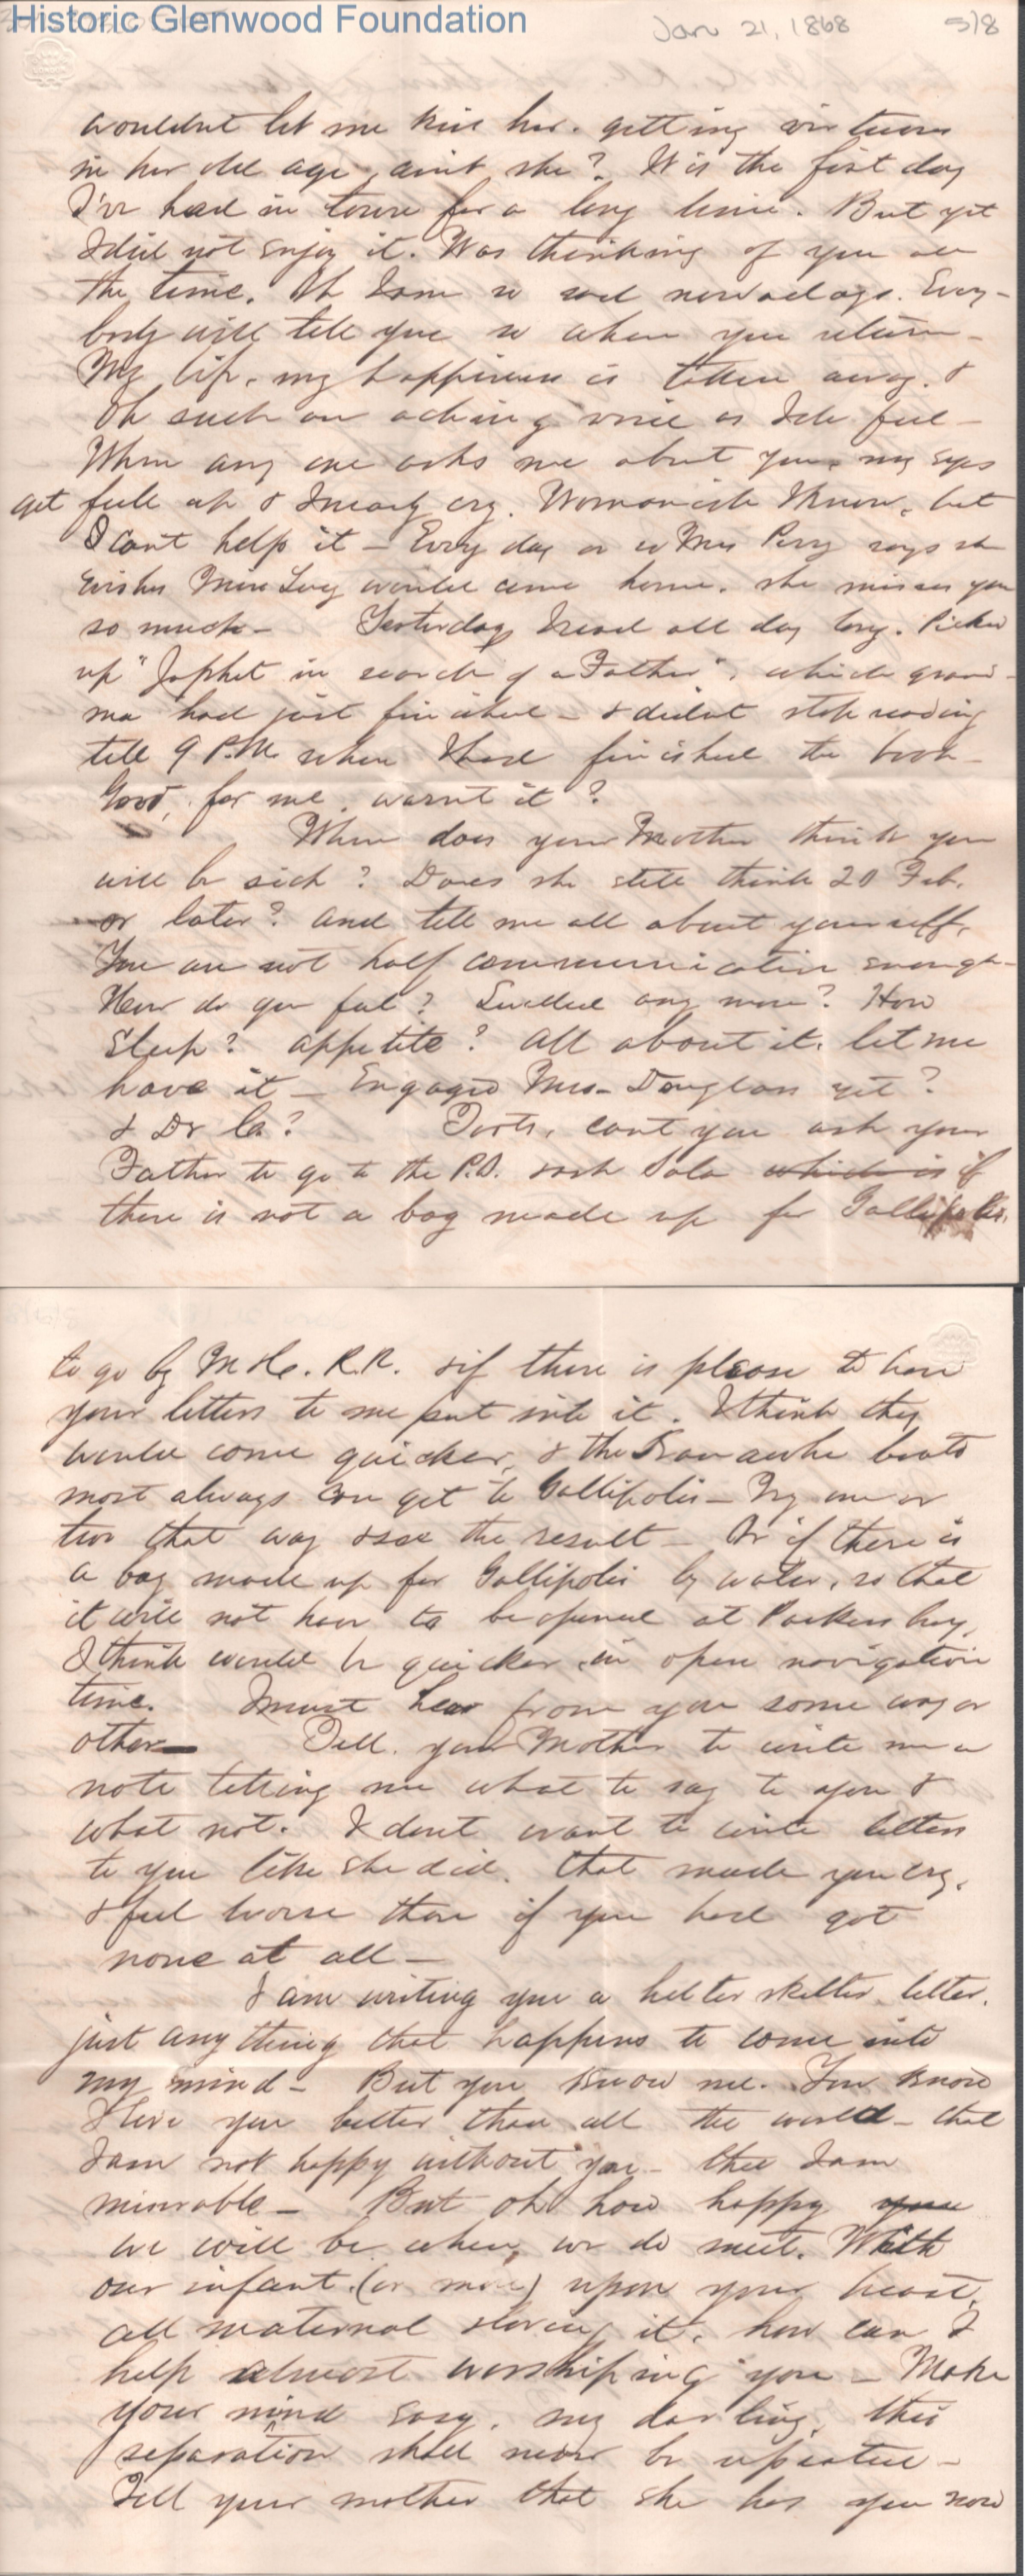 Historic Glenwood Foundation
Jan 21, 1868 5/8
wouldnt let me kiss her. getting virtuous
in her old age, aint she? It is the first day
I've had in town for a long time. But yet
I did not enjoy it. Was thinking of you all
the time. Oh I am so sad nowadays. Every-
body will tell you so when you return -
My life, my happiness is taken away. &
Oh such an aching void as I do feel -
When any one asks me about you, my eyes
get full up & I nearly cry. Womanish I know, but
I cant help it - Every day or so Mrs Perry says she
wishes Miss Lucy would come home. she misses you
so much - Yesterday I read all day long. Picked
up "Japhet in search of a Father", which grand-
ma had just finished - & didnt stop reading
till 9 P.M. when I had finished the book -
Good, for me, warnt it?
When does your Mother think you
will be sick? Does she still think 20 Feb.
or later? and tell me all about yourself.
You are not half communicative enough -
How do you feel? Swelled any more? How
Sleep? appetite? All about it. let me
have it - Engaged Mrs - Douglass yet?
& Dr Ca? Toots, cant you ask your
Father to go to the P.O. & ask which is if
there is not a bag made up for Gallipolis,
to go by M & C. R.R. & if there is please to have
your letters to me put into it. I think they
would come quicker, & the Kanawha boats
most always can get to Gallipolis - Try one or
two that way & see the result - Or if there is
a bag made up for Gallipolis by water, so that
it will not have to be opened at Parkersburg,
I think would be quicker, in open navigation
time. I must hear from you some way or
other - Tell your Mother to write me a
note telling me what to say to you &
what not. I dont want to write letters
to you like she did, that made you cry,
& feel worse than if you had got
none at all -
I am writing you a helter skelter letter,
just any thing that happens to come into
my mind - But you know me. You know
I love you better than all the world - that
I am not happy without you - that I am
miserable - But oh how happy you
we will be when, we do meet. With
our infant (or more) upon your breast,
all maternal loving it, how can I
help almost worshiping you - Make
your mind easy, my darling, this
separation shall never be repeated -
Tell your mother that she has you now